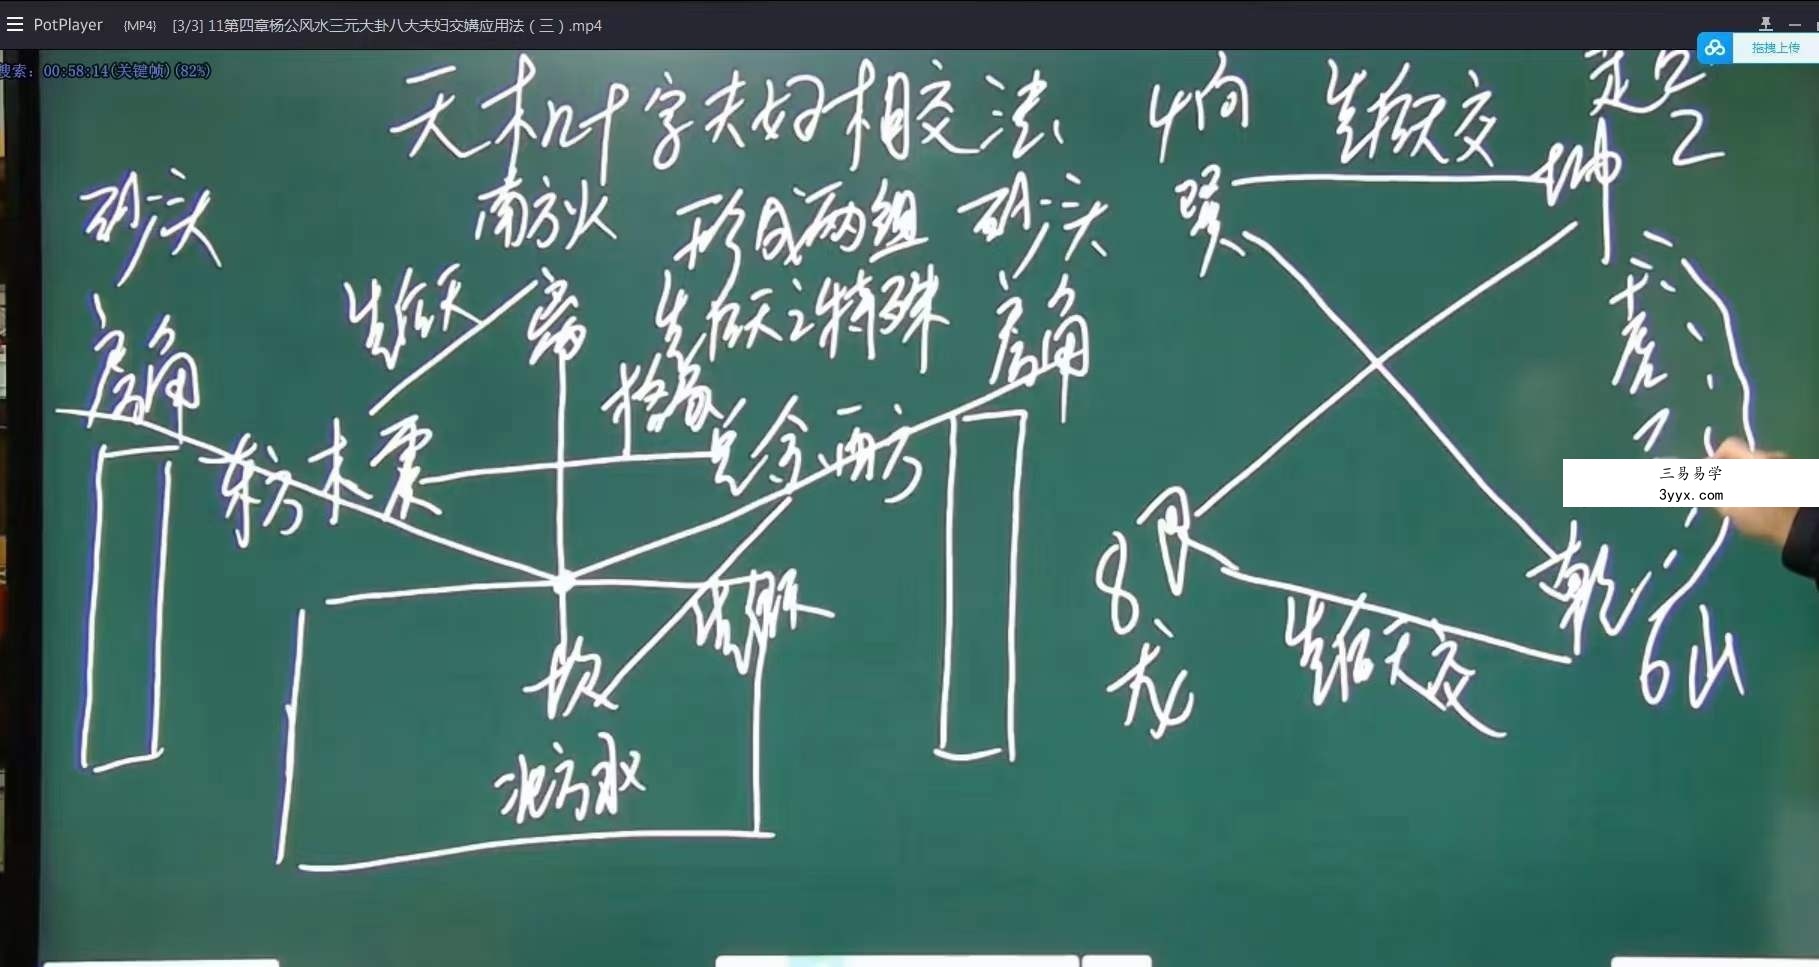 PotPlayer {MP4} [3/3] 11第四章杨公风水三元大卦八大夫妇交媾应用法（三）.mp4
拖拽上传
搜索：00:58:14(关键帧)(82%)
天木几十字夫妇相交法
4向
先后天交
2
坤
巽
砂头
南方火
形成两组
砂头
先后天
离
先后天之特殊
房角
房角
东方木震
兑金西方
三易易学
3yyx.com
艮
8
龙
乾
6山
先后天交
坎
北方水